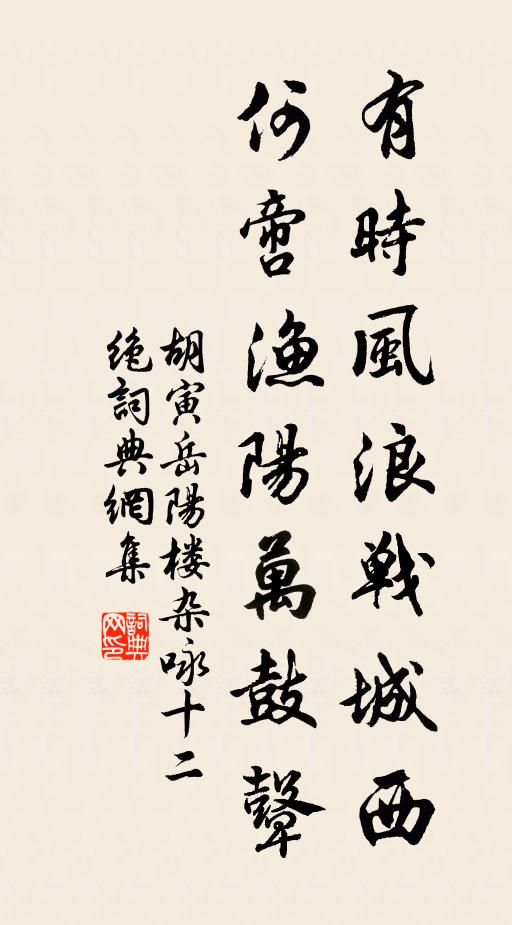 有時風浪戦城西
何啻漁陽萬鼓鼙
胡寅岳陽楼杂咏十二
絶詞典網集
詞典网印